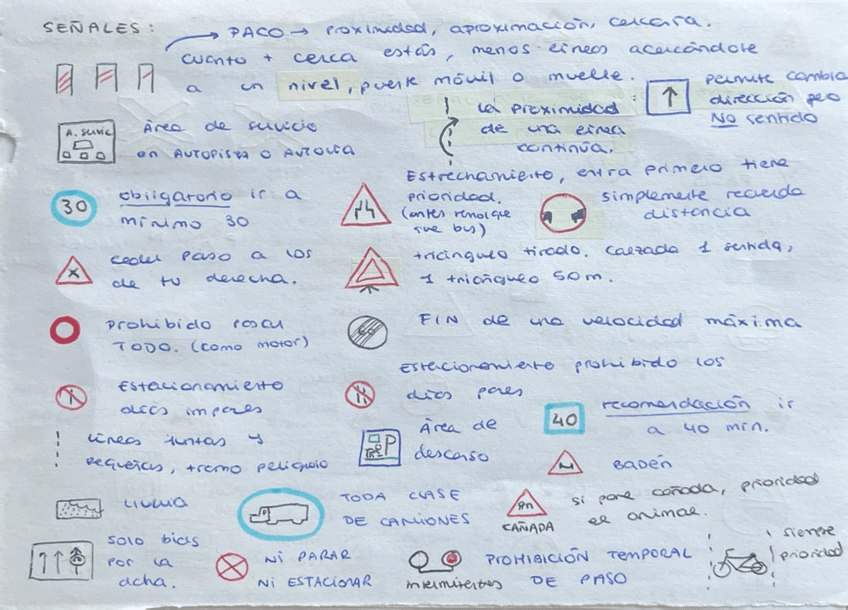 SEÑALES:
PACO → proximidad, aproximación, cercanía.
cuanto + cerca estás, menos líneas acercándote
a un nivel, puente móvil o muelle.
↑ permite cambiar
dirección pero
NO sentido
la proximidad
de una línea
continua.
A. SERVIC
Área de servicio
en AUTOPISTA O AUTOVIA
30 obligatorio ir a
mínimo 30
Estrechamiento, entra primero tiene
prioridad.
(antes remolque
que bus)
simplemente recuerda
distancia
ceder paso a los
de tu derecha.
triángulo tirado. calzada 1 sentido,
1 triángulo 50m.
Prohibido pasar
TODO. (como motor)
60 FIN de una velocidad máxima
Estacionamiento
días impares
Estacionamiento prohibido los
días pares
líneas juntas y
pequeñas, tramo peligroso
P
Área de
descanso
40 recomendación ir
a 40 mín.
BADÉN
LLUVIA
TODA CLASE
DE CAMIONES
CAÑADA
si pone cañada, prioridad
el animal.
SOLO bicis
por la
dcha.
NI PARAR
NI ESTACIONAR
intermitentes
PROHIBICIÓN TEMPORAL
DE PASO
siempre
prioridad